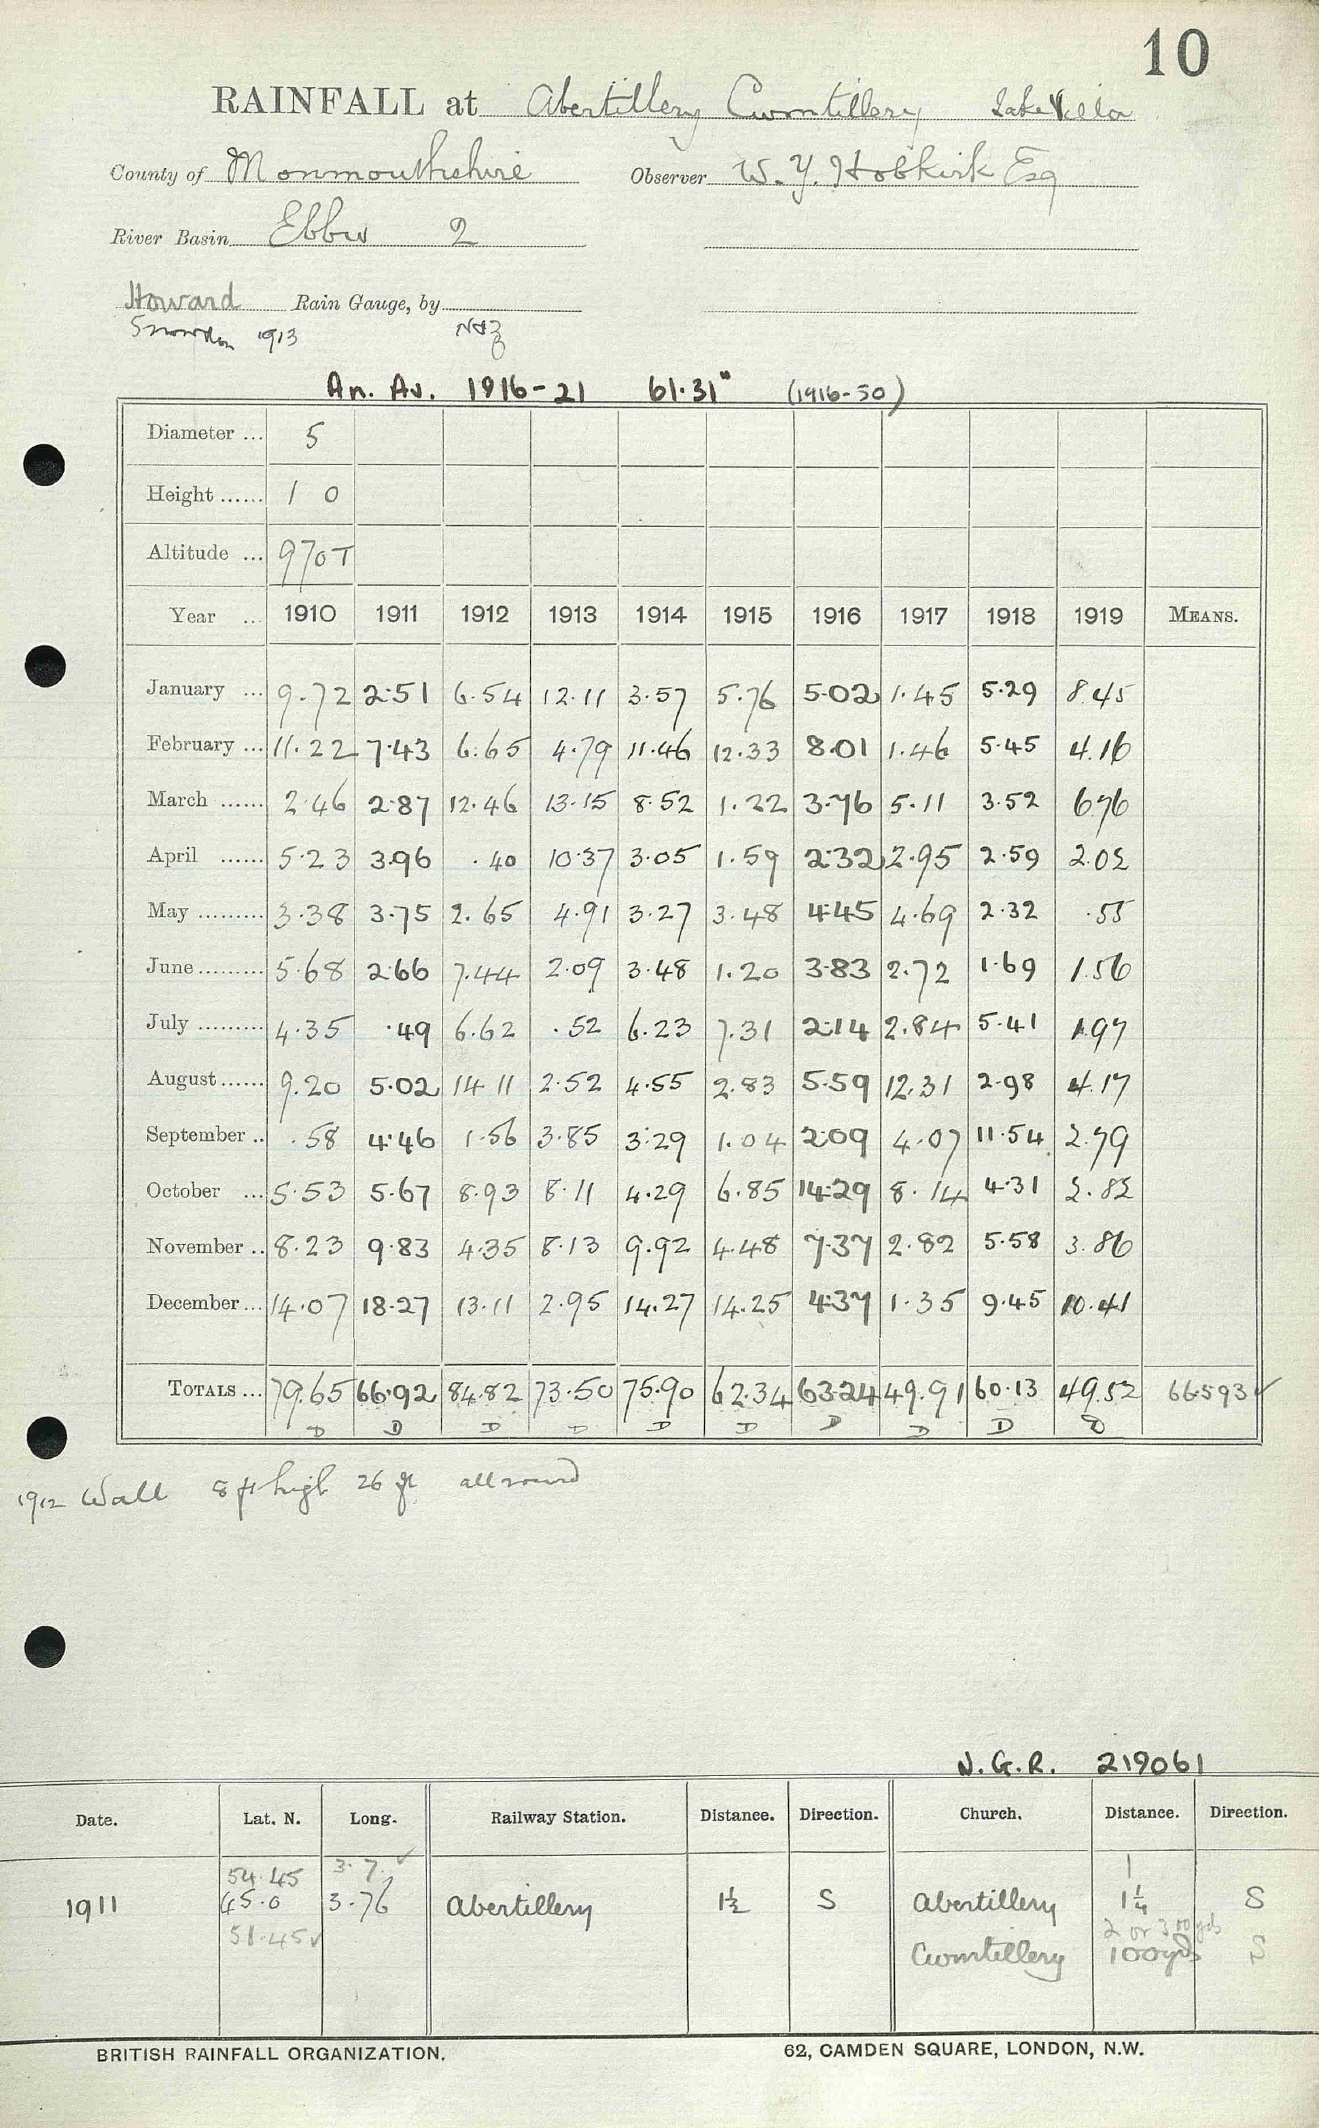 10
RAINFALL at Abertillery Cwmtillery Lake Villa
County of Monmouthshire Observer W. Y. Hobkirk Esq
River Basin Ebbw 2
Howard Rain Gauge, by
Snowdon 1913
An. Av. 1916-21 61.31" (1916-50)
Diameter ... 5
Height ...... 1 0
Altitude ... 970T
Year ... 1910 1911 1912 1913 1914 1915 1916 1917 1918 1919 MEANS.
January ... 9.72 2.51 6.54 12.11 3.57 5.76 5.02 1.45 5.29 8.45
February ... 11.22 7.43 6.65 4.79 11.46 12.33 8.01 1.46 5.45 4.16
March ...... 2.46 2.87 12.46 13.15 8.52 1.22 3.76 5.11 3.52 6.76
April ...... 5.23 3.96 .40 10.37 3.05 1.59 2.32 2.95 2.59 2.02
May ......... 3.38 3.75 2.65 4.91 3.27 3.48 4.45 4.69 2.32 .55
June ......... 5.68 2.66 7.44 2.09 3.48 1.20 3.83 2.72 1.69 1.56
July ......... 4.35 .49 6.62 .52 6.23 7.31 2.14 2.84 5.41 1.97
August ...... 9.20 5.02 14 11 2.52 4.55 2.83 5.59 12.31 2.98 4.17
September .. .58 4.46 1.56 3.85 3.29 1.04 2.09 4.07 11.54 2.79
October ... 5.53 5.67 8.93 8.11 4.29 6.85 14.29 8.14 4.31 2.82
November .. 8.23 9.83 4.35 8.13 9.92 4.48 7.37 2.82 5.58 3.86
December ... 14.07 18.27 13.11 2.95 14.27 14.25 4.37 1.35 9.45 10.41
TOTALS ... 79.65 66.92 84.82 73.50 75.90 62.34 63.24 49.91 60.13 49.52 66.593 ✓
D D D D D D D D D D
1912 Wall 8 ft high 26 ft all round
N.G.R. 219061
Date. Lat. N. Long. Railway Station. Distance. Direction. Church. Distance. Direction.
54.45 3.7 ✓ 1
1911 45.0 3.76 Abertillery 1½ S Abertillery 1¼ S
51.45 ✓ 2 or 300 yds
Cwmtillery 100yds S
BRITISH RAINFALL ORGANIZATION. 62, CAMDEN SQUARE, LONDON, N.W.